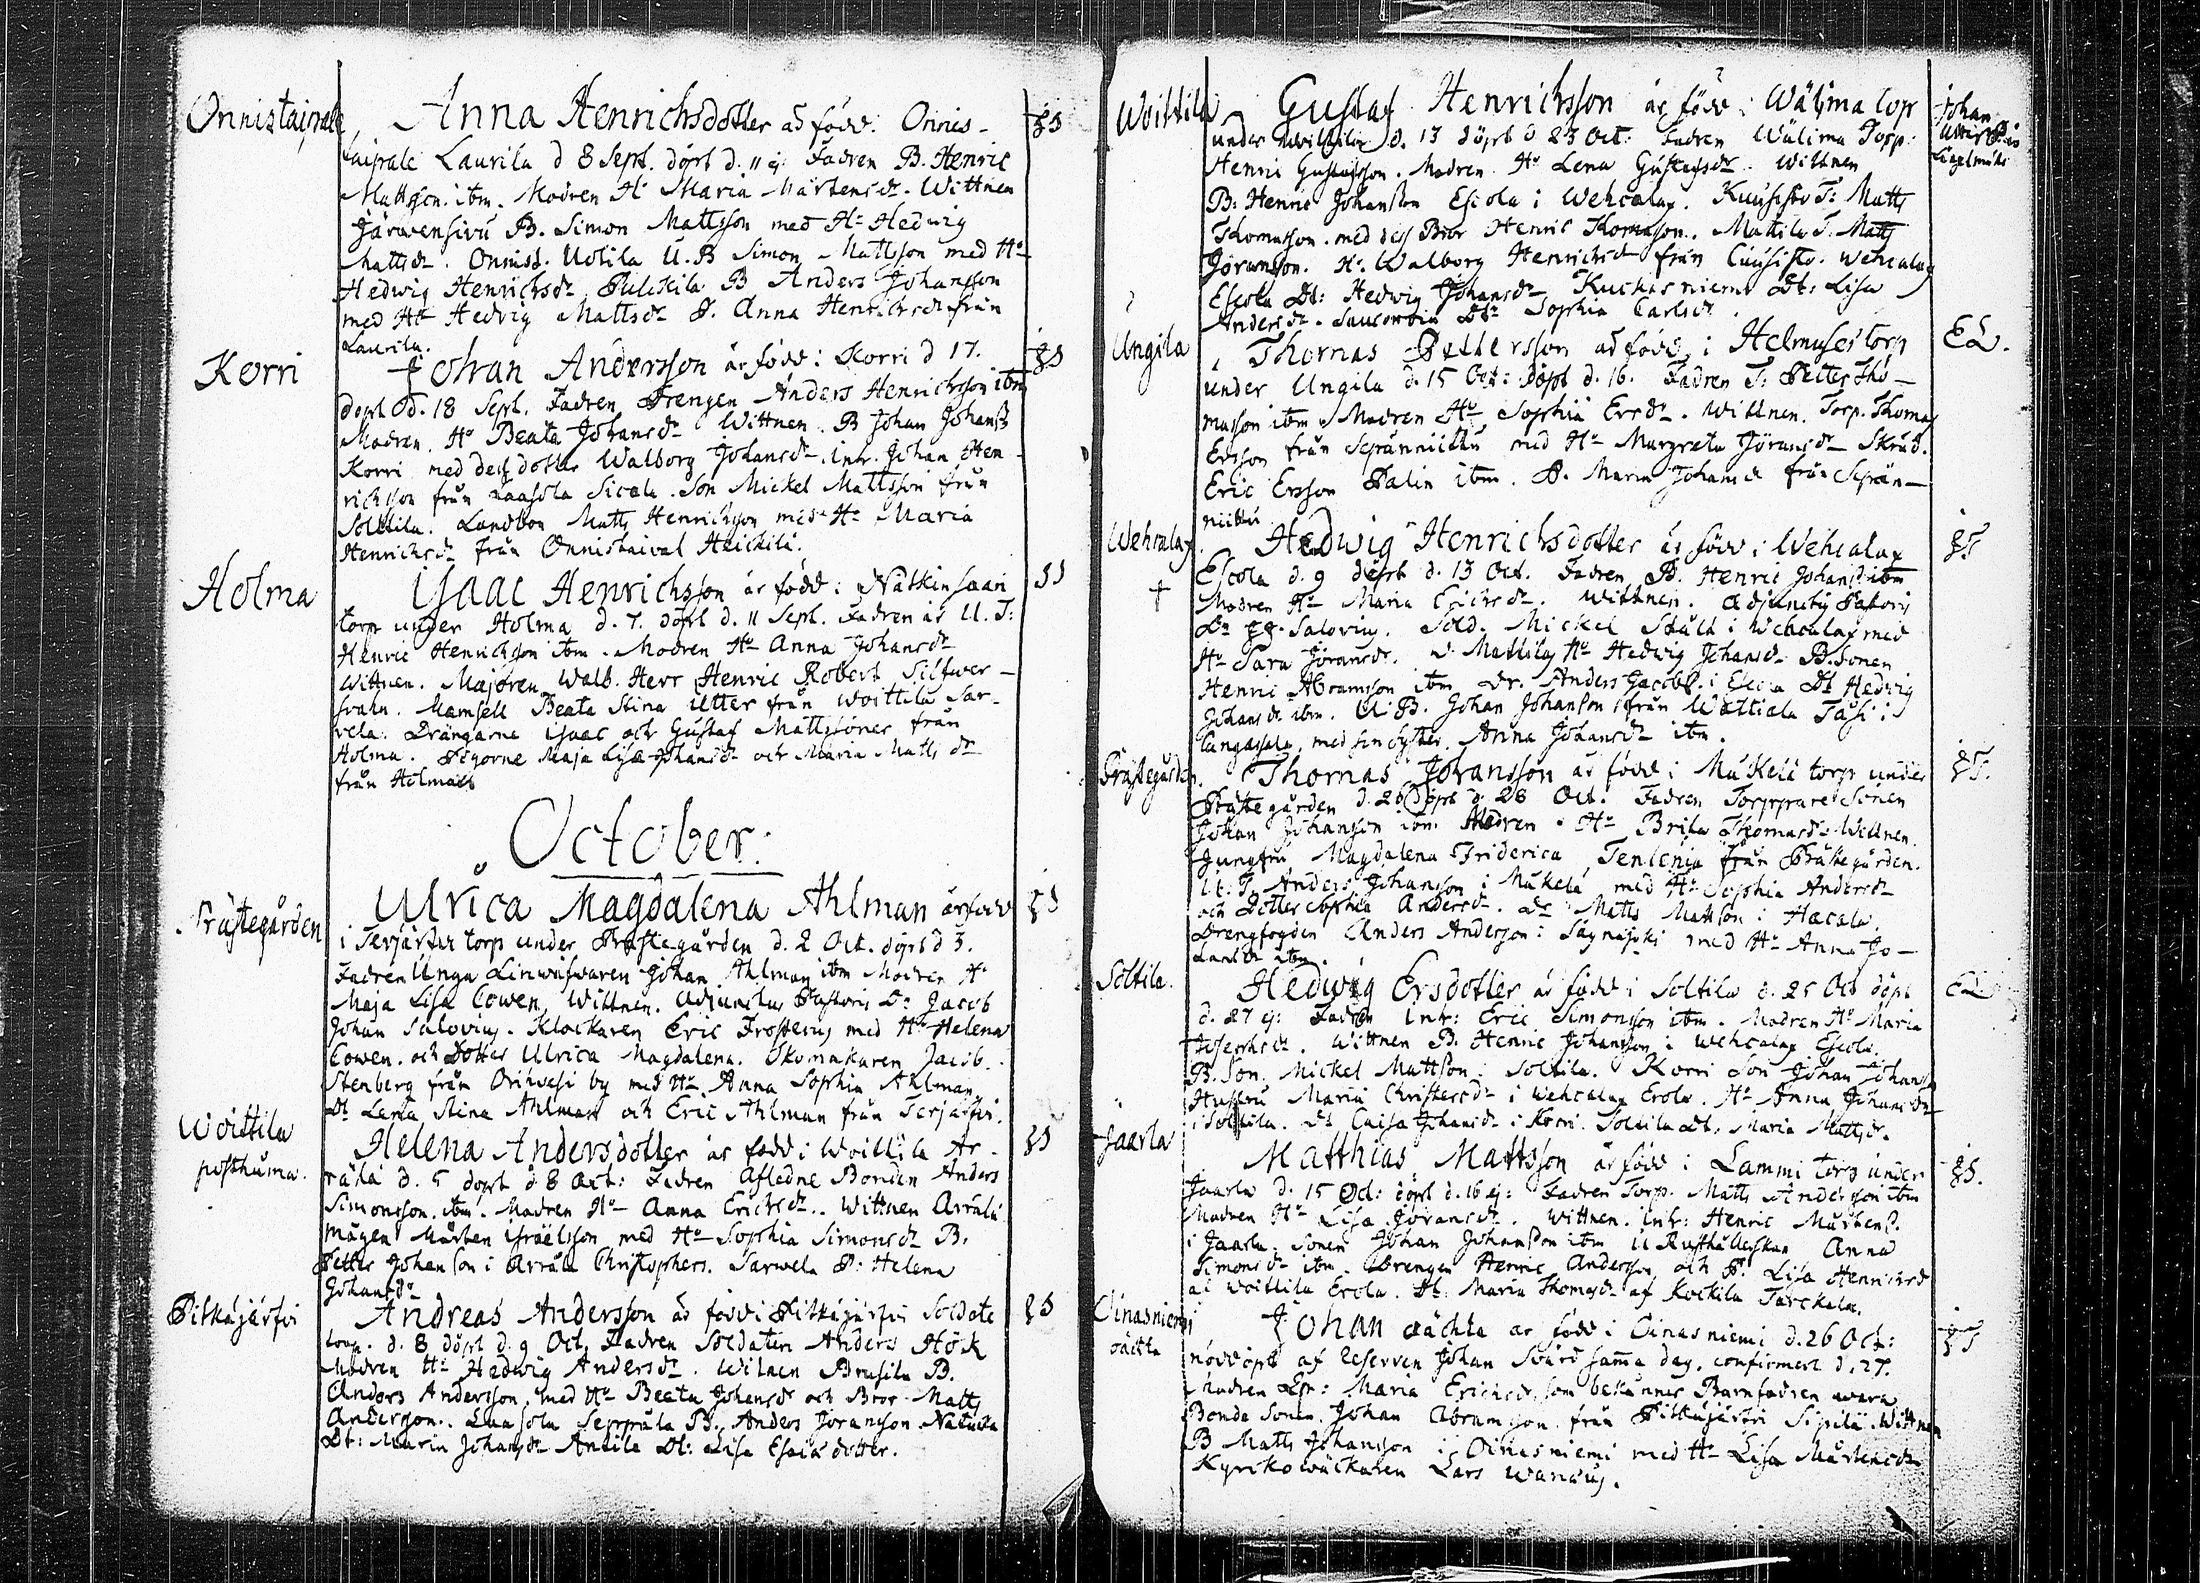 Onnistaipale
Anna Henrichsdotter är född i Onnis-
taipale Laurila d 8 Sept. döpt d. 11 ej. Fadren B. Henric
Mattsson ibm. Modren Hu Maria Mårtensdr. Wittnen
Järwensivu B. Simon Mattsson med Hu Hedwig
Mattsdr. Onnist. Uotila U.B Simon Mattsson med Hu
Hedwig Henrichsdr. Pulckila B Anders Johansson
med Hu Hedvig Mattsdr P. Anna Henrichsdr från
Laurila.
Korri
Johan Andersson är född i Korri d 17.
döpt d. 18 Sept. Fadren Drengen Anders Henrichsson ibm
Modren Hu Beata Johansdr Wittnen B Johan Johanss
Korri med dess dotter Walborg Johansdr. Inh. Johan Hen-
richsson från Laasola Sicala. Son Mickel Mattsson från
Soltila. Landbon Matts Henrichsson med Hu Maria
Henrichsdr från Onnistaival Heickilä.
Holma
Isaac Henrichsson är född i Nätkinsaari
torp under Holma d. 7. döpt d. 11 Sept. Fadren är U. T:
Henric Henrichsson ibm. Modren Hu Anna Johansdr
Wittnen. Majoren Walb. Herr Henric Robert Silfwer-
svahn. Mamsell Beata Stina Utter från Woittila Sar-
vela. Drängarne Isaac och Gustaf Mattssöner från
Holma. Pigorne Maja Lisa Johansdr och Maria Mattsdr
från Holma
October.
Prästegården
Ulrica Magdalena Ahlman är född
i Terjärfvi torp under Prästegården d. 2 Oct. döpt d 3.
Fadren Unga Linwäfwaren Johan Ahlman ibm Modren Hu
Maja Lisa Cowen, Wittnen. Adjunctus Pastoris Dn Jacob
Johan Salovius. Klockaren Eric Frosterus med Hu Helena
Cowen. och Dotter Ulrica Magdalena. Skomakaren Jacob
Stenberg från Orihvesi by med Hu Anna Sophia Ahlman,
Dt Lena Stina Ahlman och Eric Ahlman från Terjärfvi.
Woittila
posthuma.
Helena Andersdotter är född i Woittila Ar-
rälä d. 5 döpt d 8 Oct: Fadren Afledne Bonden Anders
Simonsson. ibm. Modren Hu Anna Erichsdr.. Wittnen Arrälä
mågen Mårten Israëlsson med Hu Sophia Simonsdr B.
Petter Johansson i Arrälä Christophers. Sarwela P: Helena
Johansdr
Pitkäjärfvi
Andreas Andersson är född i Pitkäjärfvi Soldate
torp. d. 8 döpt d. 9 Oct, Fadren Soldaten Anders Hök
Modren Hu Hedwig Andersdr. Witnen Brusila B.
Anders Andersson, med Hu Beata Johansdr och Bror Matts
Andersson. Laasola Seppälä B. Anders Jöransson
Dt: Maria Johansdr Anttila Dt: Lisa Esaiædotter.
Woittila
Gustaf Henrichsson är född i Wälima torp
under Woittila d. 13 döpt d 23 Oct: Fadren Wälima Torp.
Henric Gustafsson. Modren Hu Lena Gustafsdr. Wittnen
B: Henric Johansson Escola i Wehcalax. Kuusisto T: Matts
Thomasson. med dess Bror Henric Thomasson. Mattila T. Matts
Jöransson. Hu. Walborg Henrichsdr från Cuusisto. Wehcalax
Escola Dt: Hedwig Johansdr. Kuckasniemi Dt: Lisa
Andersdr. Dtr Sophia Carlsdr.
Johan
Ungila
Thomas Pettersson är född i Helmises torp
under Ungila d. 15 Oct: döpt d. 16. Fadren T: Petter Tho-
masson ibm. Modren Hu Sophia Ersdr. Wittnen. Torp. Thomas
Ersson från Seppänniittu med Hu Margreta Jöransdr Skräd.
Eric Ersson Palin ibm. P. Maria Johansdr från Seppän-
niittu
EL.
Wehcalax
Hedwig Henrichsdotter är född i Wehcalax
Escola d. 9 döpt d. 13 Oct. Fadren B. Henric Johanss ibm
Modren Hu Maria Erichsdr. Wittnen. Adjunctus Pastoris
Dn JJ. Salovius. Sold. Mickel Ståll i Wehcalax med
Hu Sara Jöransdr. Hu Hedwig Johansdr B.sonen
Henric Abramsson ibm Dr. Anders Jacobss. i Escola Dt Hedwig
Johansdr ibm. U.B. Johan Johanson från Wattiala Tåsi i
Cangasala, med sin syster Anna Johansdr ibm.
Prästegården.
Thomas Johansson är född i Mäkelä torp under
Prästegården d. 26 döpt d. 28 Oct. Fadren Torppare Sonen
Johan Johansson ibm. Modren Hu Brita Thomasdr. Wittnen.
Jungfru Magdalena Friderica Tenlenia från Prästegården.
U: T. Anders Johansson i Mäkelä med Hu Sophia Andersdr
och Dotter Sophia Andersdr. Dr Matts Mattson i Hacala.
Drengfogden Anders Andersson i Säynäjoki med Hu Anna Jo-
hansdr ibm.
Soltila.
Hedwig Ersdotter är född i Soltila d. 25 Oct döpt
d. 27 ej: Fadren Inh: Eric Simonsson ibm. Modren Hu Maria
Josephsdr. Wittnen B. Henric Johansson i Wehcalax Escola.
B. Son. Mickel Mattson i Soltila. Korri Son Johan Johanss
Hustru Maria Christersdr i Wehcalax Erola. Hu Anna Johansdr
i Soltila. Dt Caisa Johansdr i Korri. Soltila Dt. Maria Mattsdr.
EL
Jaarla
Matthias Mattsson är född i Lammi torp under
Jaarla d. 15 Oct: döpt d. 16 ej: Fadren Torp. Matts Andersson ibm
Modren Hu Lisa Jöransdr. Wittnen. Inh: Henric Mårtenss.
i Jaarla. Sonen Johan Johansson ibm U Rusthållerskan Anna
Simonsdr ibm. Drengen Henric Andersson och P. Lisa Henrichsd
af Woittila Erola. Dt: Maria Thomasdr af Kockila Tarckala.
Oinasniemi
oächta
Johan oächta är född i Oinasniemi d. 26 Oct:
nöddöpt af Reserven Johan Svärd samma dag. confirmert d. 27.
Modren Lp: Maria Erichsdr, som bekänner Barnfadren wara
Bonde Sonen Johan Abramsson från Pitkäjärfvi Sipilä. Wittnen
B Matts Johansson i Oinasniemi med Hu Lisa Mårtensdr
Kyrckowäcktaren Lars Wanæus.